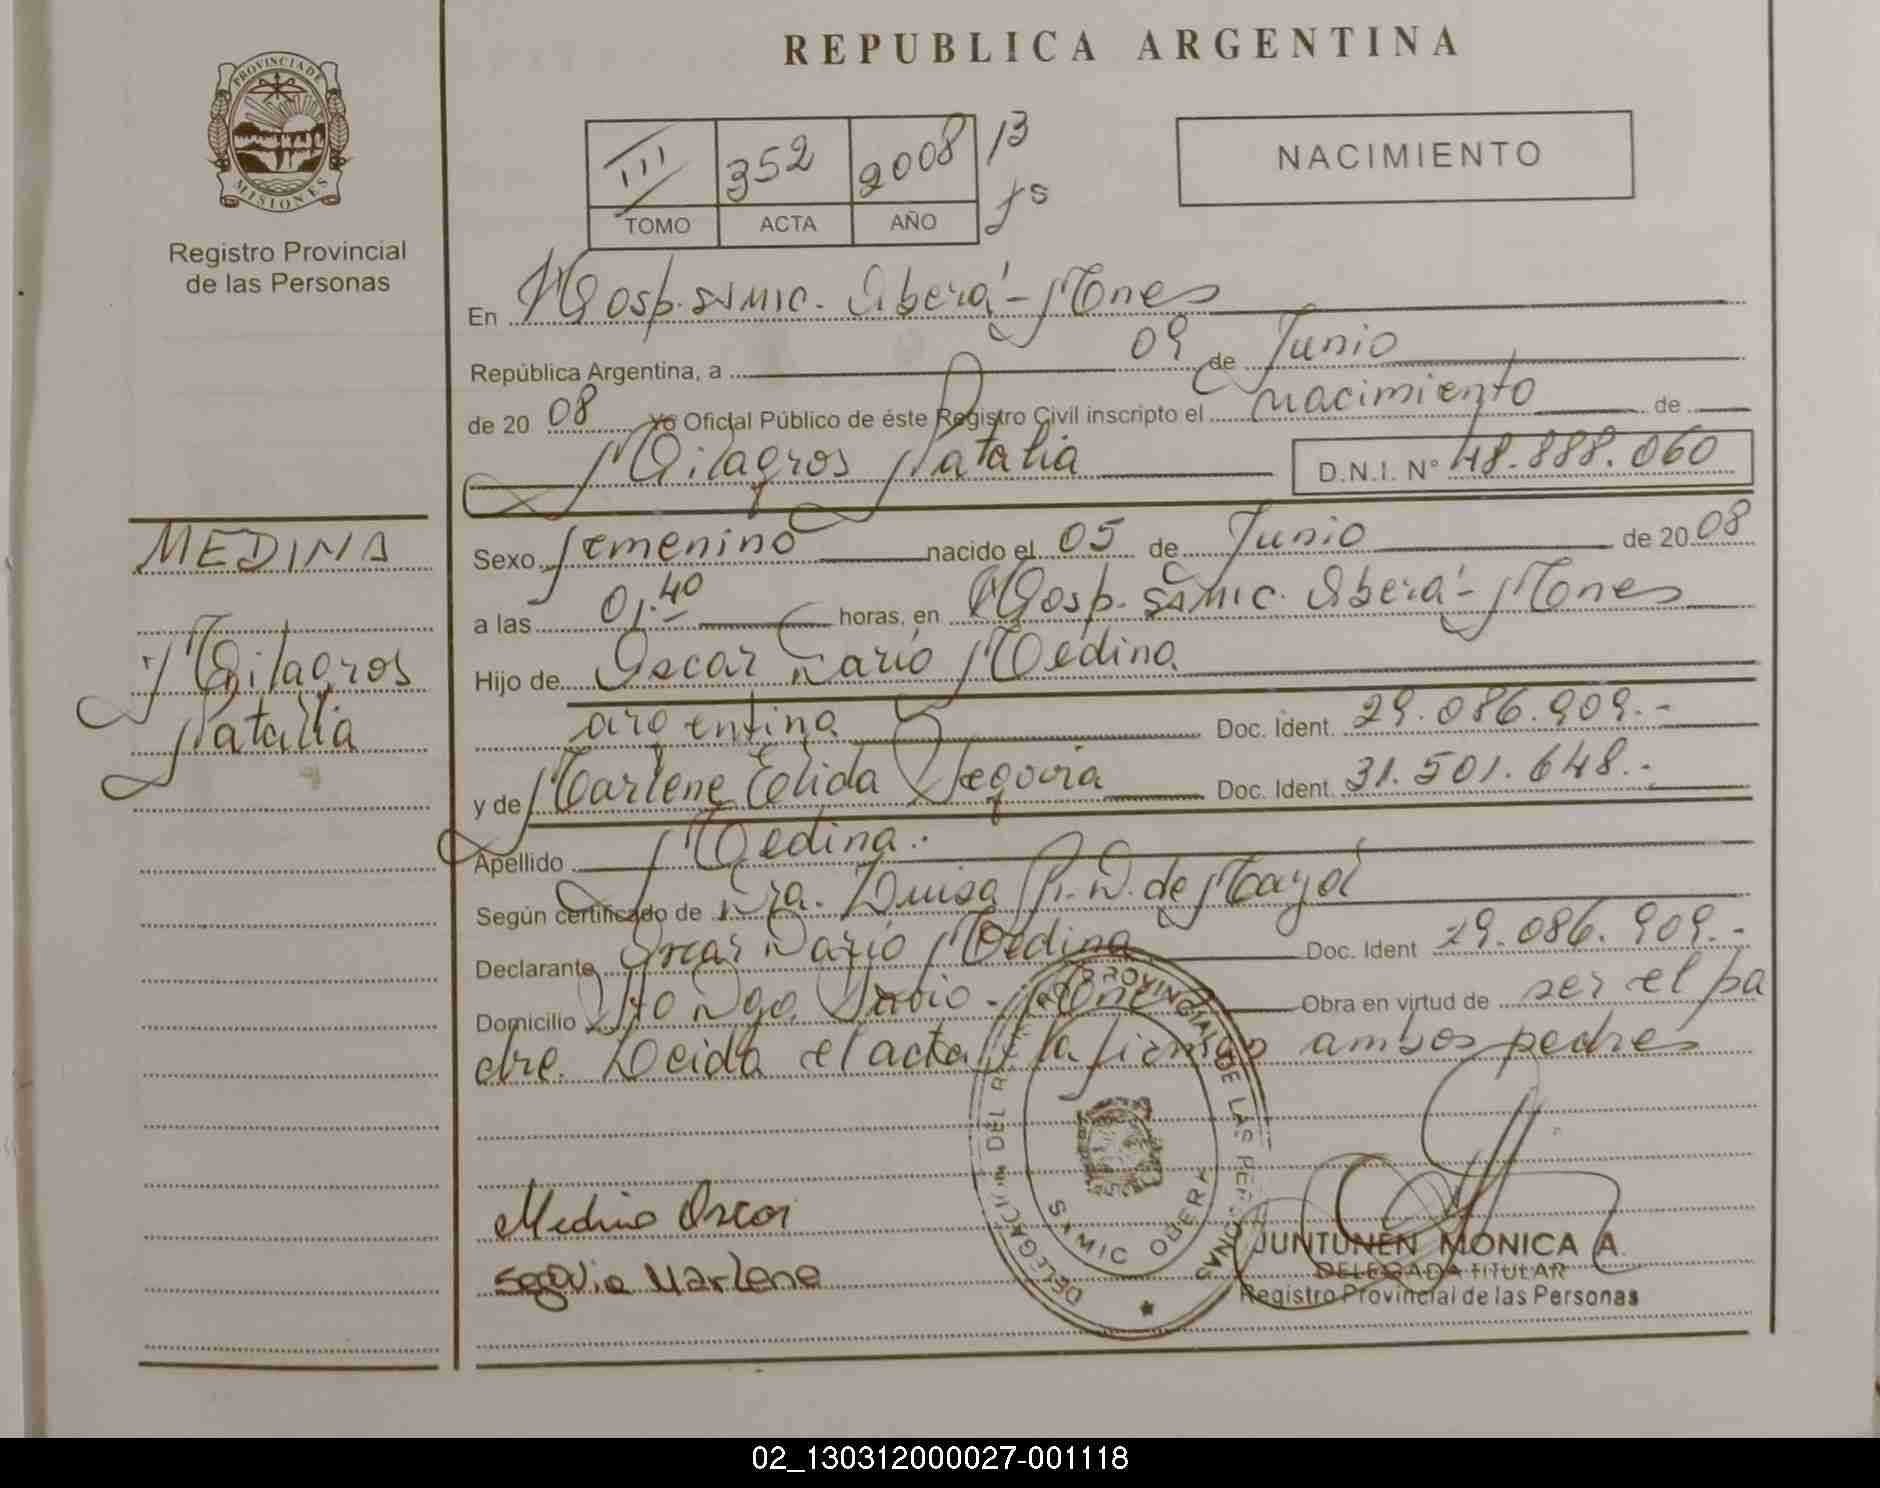 REPUBLICA ARGENTINA
PROVINCIA DE MISIONES
Registro Provincial
de las Personas
III 352 2008 13
TOMO ACTA AÑO fs
NACIMIENTO
En Hosp. SAMIC. Oberá - Mnes
República Argentina, a 09 de Junio
de 20 08 Yo Oficial Público de éste Registro Civil inscripto el nacimiento de
Milagros Natalia D.N.I. N° 48.888.060
MEDINA
Milagros
Natalia
Sexo femenino nacido el 05 de Junio de 20 08
a las 01.40 horas, en Hosp. SAMIC. Oberá - Mnes
Hijo de Oscar Darío Medina
argentina Doc. Ident. 29.086.909.-
y de Marlene Elida Segovia Doc. Ident. 31.501.648.-
Apellido Medina.
Según certificado de Dra. Luisa D. de Mayol
Declarante Oscar Darío Medina Doc. Ident 29.086.909.-
Domicilio Sto Dgo. Savio - Obra en virtud de ser el pa
dre. Leida el acta la firman ambos padres
Medina Oscar
Segovia Marlene
DELEGACION DEL REGISTRO PROVINCIAL DE LAS PERSONAS
SAMIC OBERA
JUNTUNEN MONICA A.
DELEGADA TITULAR
Registro Provincial de las Personas
02_130312000027-001118